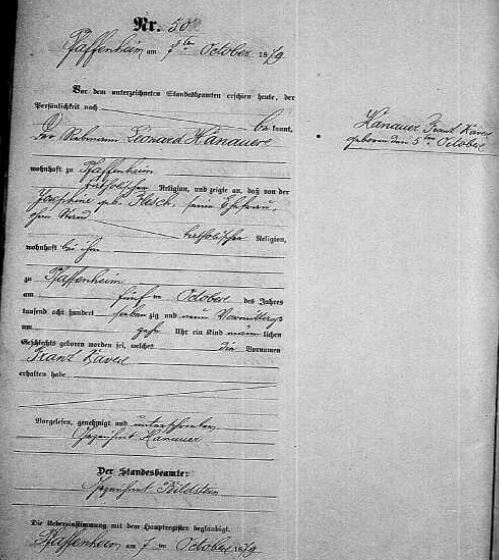 Nr. 50
Pfaffenheim am 7ten October 1879
Vor dem unterzeichneten Standesbeamten erschien heute, der
Persönlichkeit nach be kannt,
Der Rebmann Leonard Hanauer
wohnhaft zu Pfaffenheim
katholischen Religion, und zeigte an, daß von der
Josephine geb. Flesch, seine Ehefrau,
ohne Stand
katholischen Religion,
wohnhaft bei ihm
zu Pfaffenheim
am fünften October des Jahres
tausend acht hundert siebenzig und neun Vormittags
um zehn Uhr ein Kind männlichen
Geschlechts geboren worden sei, welches die Vornamen
Franz Xaver
erhalten habe
Vorgelesen, genehmigt und unterschrieben
Gezeichnet Hanauer
Der Standesbeamte:
Gezeichnet Bildstein
Die Uebereinstimmung mit dem Hauptregister beglaubigt.
Pfaffenheim am 7 ten October 1879
Hanauer Franz Xaver
geboren den 5ten October